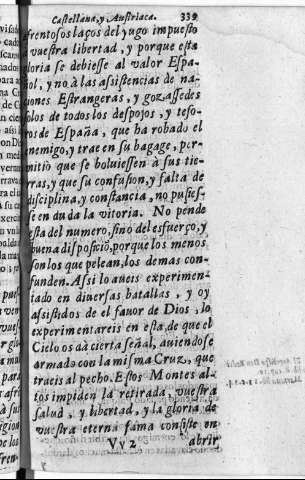 Castellana, y Austriaca. 339
afrentosos laços del yugo impuesto
à vuestra libertad, y porque esta
gloria se debiesse al valor Espa-
ñol, y no à las assistencias de na-
ciones Estrangeras, y gozassedes
solos de todos los despojos, y teso-
ros de España, que ha robado el
enemigo, y trae en su bagage, per-
mitiò que se boluiessen à sus tie-
rras, y que su confusion, y falta de
disciplina, y constancia, no pusies-
se en duda la vitoria. No pende
esta del numero, sino del esfuerço, y
buena disposiciõ, porque los menos
son los que pelean, los demas con-
funden. Assi lo aueis experimen-
tado en diuersas batallas, y oy
assistidos de el fauor de Dios, lo
experimentareis en esta, de que el
Cielo os dà cierta señal, auiendose
armado con la misma Cruz, que
traeis al pecho. Estos Montes al-
tos impiden la retirada, vuestra
salud, y libertad, y la gloria de
vuestra eterna fama consiste en
Vv 2 abrir